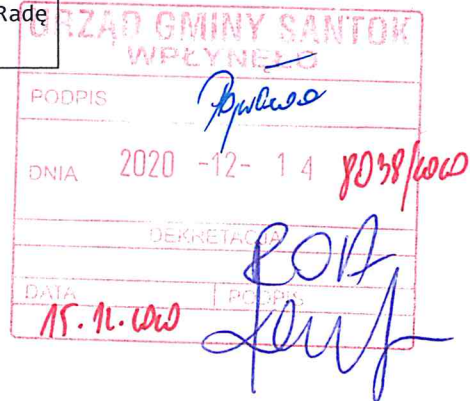 Radę
URZĄD GMINY SANTOK
WPŁYNĘŁO
PODPIS
DNIA 2020 -12- 14 8038/2020
DEKRETACJA
DATA PODPIS
15.12.2020